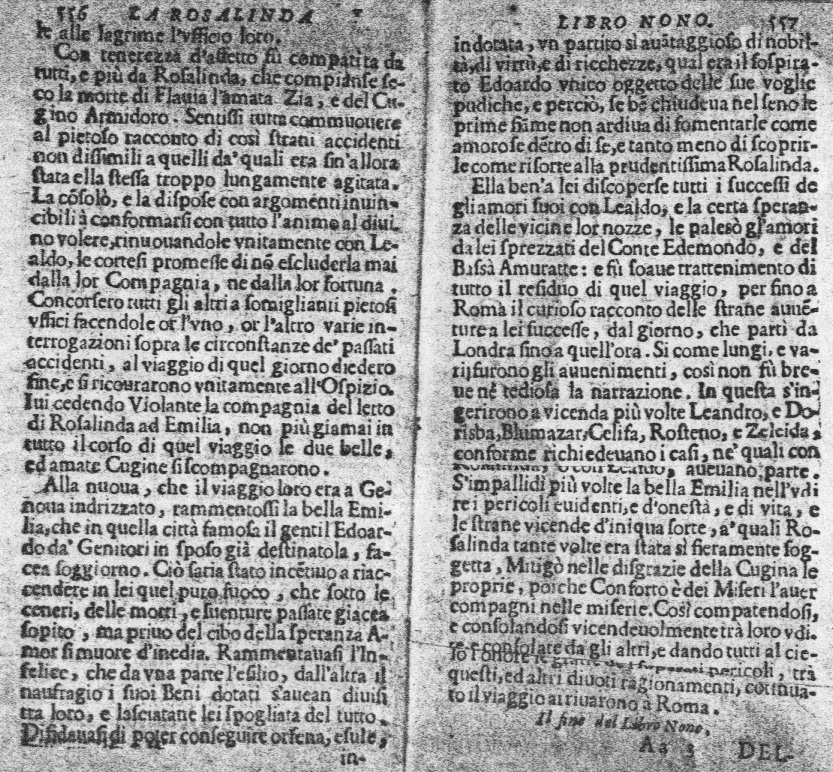 556 LA ROSALINDA
le alle lagrime l'vfficio loro.
Con tenerezza d'affetto fù compatita da
tutti, e più da Rosalinda, che compianse se-
co la morte di Flauia l'amata Zia, e del Cu-
gino Armidoro. Sentissi tutta commuouere
al pietoso racconto di così strani accidenti
non dissimili a quelli da' quali era sin'allora
stata ella stessa troppo lungamente agitata.
La cõsolò, e la dispose con argomenti inuin-
cibili à conformarsi con tutto l'animo al diui-
no volere, rinuouandole vnitamente con Le-
aldo, le cortesi promesse di nõ escluderla mai
dalla lor Compagnia, ne dalla lor fortuna.
Concorsero tutti gli altri a somiglianti pietosi
vffici facendole or l'vno, or l'altro varie in-
terrogazioni sopra le circonstanze de' passati
accidenti, al viaggio di quel giorno diedero
fine, e si ricourarono vnitamente all'Ospizio.
Iui cedendo Violante la compagnia del letto
di Rosalinda ad Emilia, non più giamai in
tutto il corso di quel viaggio le due belle,
ed amate Cugine si scompagnarono.
Alla nuoua, che il viaggio loro era a Ge-
noua indrizzato, rammentossi la bella Emi-
lia, che in quella città famosa il gentil Edoar-
do da' Genitori in sposo già destinatola, fa-
cea soggiorno. Ciò saria stato incẽtiuo a riac-
cendere in lei quel puro fuoco, che sotto le
ceneri, delle morti, e suenture passate giacea
sopito, ma priuo del cibo della speranza A-
mor si muore d'inedia. Rammentauasi l'In-
felice, che da vna parte l'esilio, dall'altra il
naufragio i suoi Beni dotati s'auean diuisi
tra loro, e lasciatane lei spogliata del tutto.
Disidauasi di poter conseguire orfena, esule,
in-
LIBRO NONO. 557
indotata, vn partito sì auãtaggioso di nobil-
tà, di virtù, e di ricchezze, qual era il sospira-
to Edoardo vnico oggetto delle sue voglie
pudiche, e perciò, se bẽ chiudeua nel seno le
prime fiãme non ardiua di fomentarle come
amorose dẽtro di se, e tanto meno di scoprir-
le come risorte alla prudentissima Rosalinda.
Ella ben'a lei discoperse tutti i successi de
gli amori suoi con Lealdo, e la certa speran-
za delle vicine lor nozze, le palesò gl'amori
da lei sprezzati del Conte Edemondo, e del
Bassà Amuratte: e fù soaue trattenimento di
tutto il residuo di quel viaggio, per fino a
Roma il curioso racconto delle strane auuẽ-
ture a lei successe, dal giorno, che partì da
Londra fino a quell'ora. Si come lunghi, e va-
rij furono gli auuenimenti, così non fù bre-
ue nè tediosa la narrazione. In questa s'in-
gerirono a vicenda più volte Leandro, e Do-
risba, Blumazar, Celisa, Rosteno, e Zeleida,
conforme richiedeuano i casi, ne' quali con
Rosalinda, o con Lealdo, aueuano parte.
S'impallidì più volte la bella Emilia nell'vdi
re i pericoli euidenti, e d'onestà, e di vita, e
le strane vicende d'iniqua sorte, a' quali Ro-
salinda tante volte era stata sì fieramente sog-
getta, Mitigò nelle disgrazie della Cugina le
proprie, poiche Conforto è de i Miseri l'auer
compagni nelle miserie. Così compatendosi,
e consolandosi vicendeuolmente trà loro vdi-
te e consolate da gli altri, e dando tutti al cie-
lo l'onore pericoli, trà
questi, ed altri diuoti ragionamenti, cõtinua-
to il viaggio arriuarono à Roma.
Il fine del Libro Nono.
Aa 3 DEL-